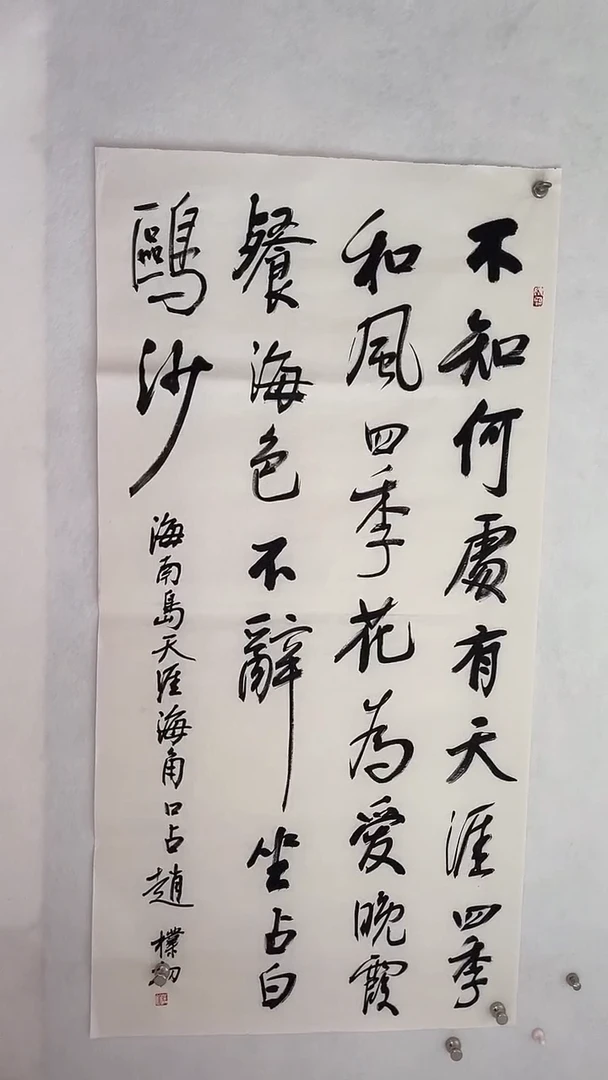 不知何處有天涯四季
和風四季花為愛晚霞
餐海色不辭坐占白
鷗沙
海南島天涯海角口占趙樸初